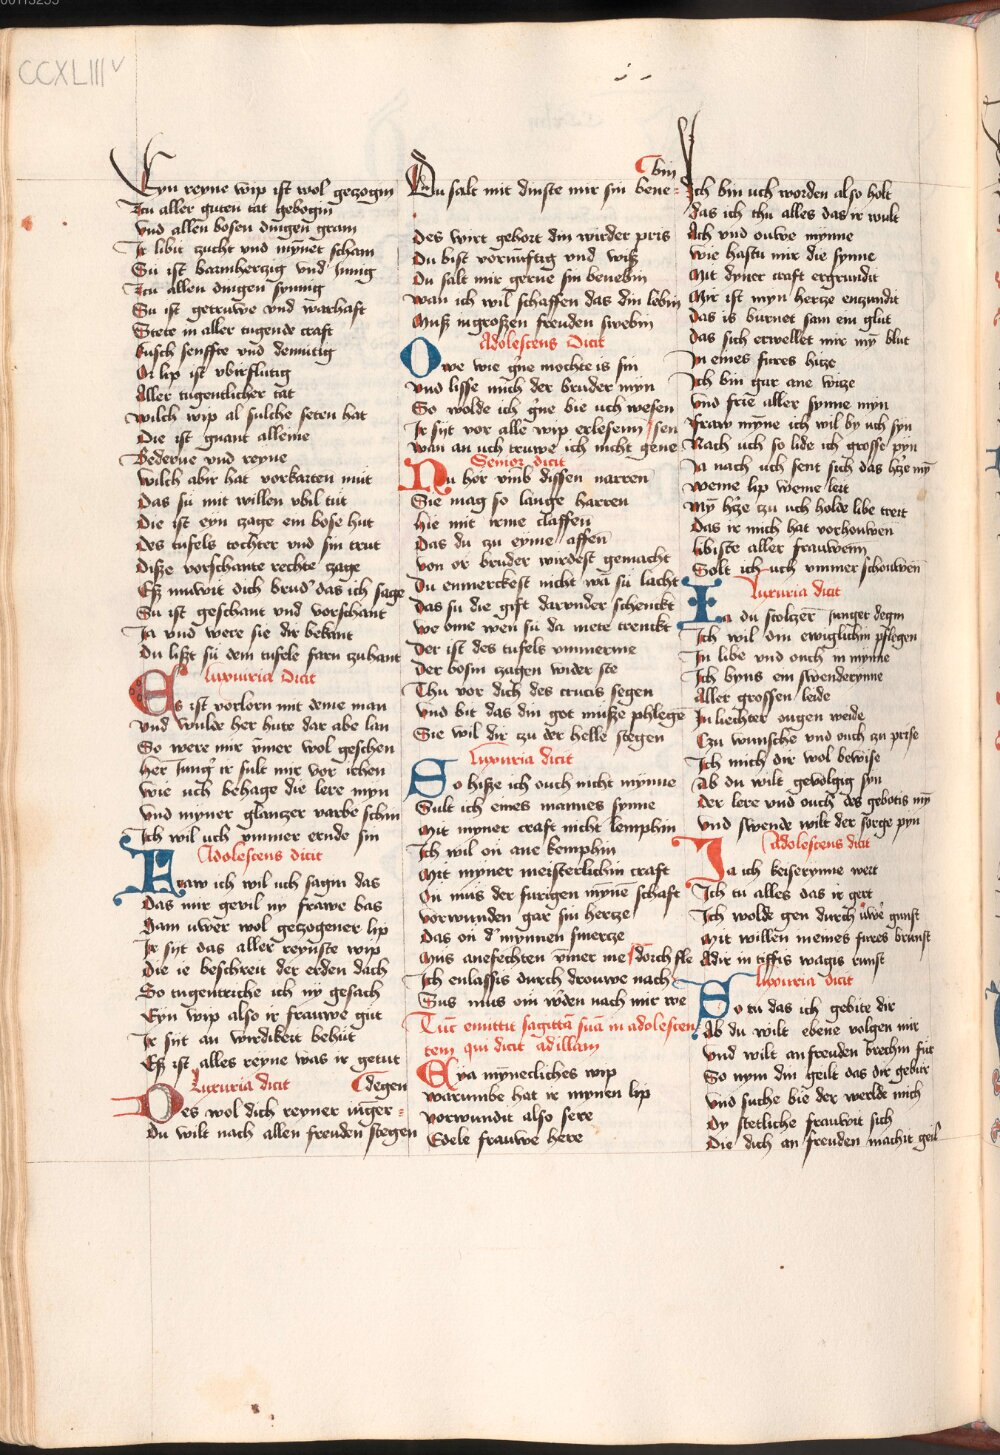 CCXLIII v
Eyn reyne wip ist wol gezogin
Zcu aller guten tat gebogin
Vnd allen bosen dingen gram
Ir libit zucht vnd myner scham
Su ist barmherzig vnd Innig
Zcu allen dingen synnig
Su ist getruwe vnd warhaft
Stete in aller tugende craft
kusch senffte vnd demutig
Or lip ist vbirflutig
Aller tugentlicher tat
wilch wip al sulche seten hat
Die ist gnant alleine
Bederue vnd reyne
wilch abir hat vorkarten mut
Das su mit willen vbil tut
Die ist eyn zage ein bose hut
Des tufels tochter vnd sin trut
Disze vorschante rechte zage
Esz muwit dich brud' das ich sage
Su ist geschant vnd vorschant
Ja vnd were sie dir bekant
Du liszt su dem tufele farn zuhant
luxuria dicit
Es ist vorlorn mit deme man
vnd wulde her hute dar abe lan
So were mir ymer wol geschen
her Jung' ir sult mir vor iehen
wie uch behage die lere myn
vnd myner glanczer varbe schin
Ich wil uch ymmer ernde sin
Adolescens dicit
Fraw ich wil uch sagin das
Das mir geuil ny frawe bas
Sam uwer wol gezogener lip
Ir sijt das aller reynste wip
die ie beschreit der erden dach
So tugentriche ich ny gesach
Eyn wip also ir frauwe gut
Ir sijt an wirdikeit behut
Esz ist alles reyne was ir getut
Luxuria dicit degen
Des wol dich reyner unger=
du wilt nach allen freuden stegen
bin
Du salt mit dinste mir sin bene=
Des wirt gehort din wirder pris
Du bist vornuftig vnd wisz
Du salt mir gerne sin benebin
wan ich wil schaffen das din lebin
Musz in groszen freuden swebin
Adolescens dicit
Owe wie g'ne mochte is sin
vnd lisse mich der bruder myn
So wolde ich g'ne bie uch wesen
Ir sijt vor alle wip erlesenn sen
wan an uch truwe ich nicht gene
Senior dicit
Nu her vmb dissen narren
Sie mag so lange harren
hie mit irme claffen
Das du zu eyme affen
von or bruder wirdest gemacht
Du enmerckest nicht wa su lacht
Das su die gift darunder schenckt
we ome wen su da mete trenckt
Der ist des tufels ymmerme
Der bosin zagen wider ste
Thu vor dich des crucis segen
vnd bit das din got musze phlege
Sie wil dir zu der helle stegen
Luxuria dicit
So hisze ich ouch nicht mynne
Sult ich eines mannes synne
Mit myner craft nicht lemphin
Ich wil on ane kemphin
Mit myner meisterlichin craft
On mus der furigen myne schaft
vorwunden gar sin hertze
Das on d' mynnen smercze
Mus anefechten ymer me dorch fle
Ich enlassis durch drouwe nach
Sus mus om w'den nach mir we
Tuc emittit sagitta sua in adolescen
tem qui dicit ad illam
Eya mynecliches wip
warumbe hat ir mynen lip
vorwundit also sere
Edele frauwe here
Ich bin uch worden also holt
das ich thu alles das ir wult
Ach vnd ouwe mynne
wie hastu mir die synne
Mit dyner craft ergrundit
Mir ist myn hertze enzundit
das is burnet sam ein glut
das sich erwellet mir my blut
In eines fures hitze
Ich bin gar ane witze
vnd frie aller synne myn
Fraw myne ich wil by uch syn
Nach uch so lide ich grosse pyn
Ja nach uch sent sich das h'ze my
weme lip weme leit
My h'ze zu uch holde libe treit
Das ir mich hat vorhouwen
libiste aller frauwenn
Solt ich uch ymmer schouwen
luxuria dicit
Ia du stolczer junger degin
Ich wil din ewiglichin pflegen
In libe vnd ouch in mynne
Ich byns ein swenderynne
Aller grossen leide
In liechter ougen weide
Czu wunsche vnd ouch zu prise
Ich mich dir wol bewise
Ab du wilt gevolgig syn
der lere vnd ouch des gebotis my
vnd swende wilt der sorge pyn
Adolescens dicit
Ia ich keiserynne wert
Ich tu alles das ir gert
Ich wolde gen durch uwe gunst
Mit willen meines fures brunst
Adir in tiffis wagis runst
luxuria dicit
So tu das ich gebite dir
Ab du wilt ebene volgen mir
vnd wilt an freuden brechin fut
So nym din geilt das dir gebur
vnd suche bie der werlde mich
Dy stetliche frauwit sich
Die dich an freuden machit geil